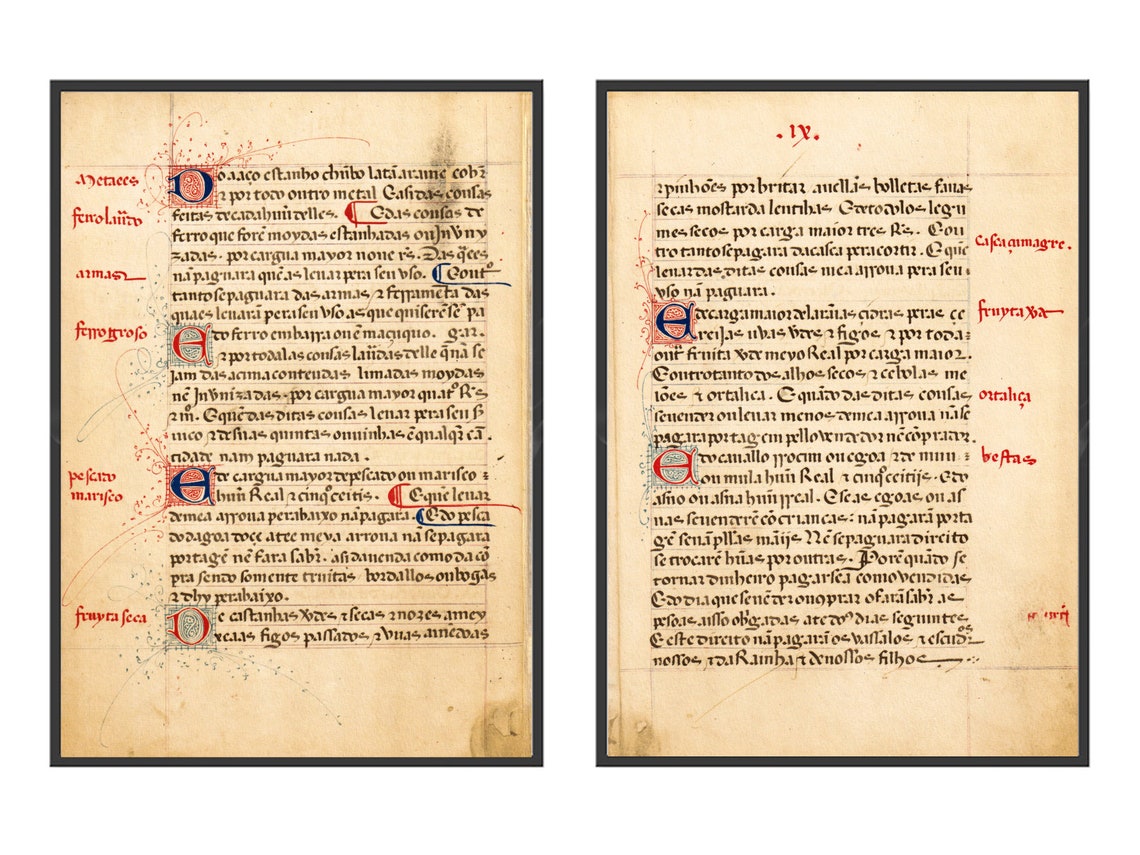 Metaees
Do aaço estanho chũbo latã arame cobr̃
⁊ por todo outro metal E asi das cousas
ferro laurado
feitas de cada hũu delles. ¶ E das cousas de
ferro que forẽ moydas estanhadas ou Jnuny
zadas. por cargua mayor noue rs̃. Das q̃ẽes
armas
nã paguara quẽ as leuar pera seu vso. ¶ E out.º
tanto se paguara das armas, ⁊ ferramẽta das
quaes leuaram pera seu vso as que quiserẽ sẽ pa
ferro grosso
E do ferro em barra ou ẽ maçuquo. gar.
⁊ por todalas cousas lau͂das delle q̃ nã se
jam das acima contendas limadas moydas
nẽ Jnvnizadas. por cargua mayor quat.º Rs̃
⁊ m.º. E quẽ das ditas cousas leuar pera seu s̃
uiço ⁊ de suas quintas ou uinhas ẽ qualqr̃ cã
tidade nam paguara nada.
pescado
marisco
E de cargua mayor de pescado ou marisco
hũu Real ⁊ cinqº ceitis. ¶ E quẽ leuar
de mea arroua pera baixo nã pagara. ¶ E do pesca
do dagoa doçe atee meya arroua nã se pagara
portagẽ nẽ fara sabr̃. asi da uenda como da cõ
pra sendo somente truitas bordallos ou bogas
⁊ dhy pera baixo.
fruyta seca
De castanhas ⱱdes ⁊ secas ⁊ nozes amey
xeaas figos passados ⁊ vuas amẽdoas
.IX.
⁊ pinhões por britar auellãs bolletas fauas
secas mostarda lentilhas E de todolos legu
mes secos por carga maior tres Rs̃. E ou
casca çumagre.
tro tanto se pagara da casca pera cortir. E quẽ
leuar das ditas cousas mea arroua pera seu
vso nã paguara.
fruyta ⱱde
E de carga maior de larãias cidras peras ce
reijas uuas ⱱdes ⁊ figos ⁊ por toda
out̃ fruita ⱱde meyo Real por carga maior.
E outro tanto dos alhos secos ⁊ cebolas me
ortaliça
lões ⁊ ortaliça. E quãdo das ditas cousas
se uender ou leuar menos de mea arroua nã se
pagara portagẽ pello vendedor nẽ cõprador.
bestas
E do cauallo rrocim ou egoa ⁊ de muu
ou mula hũu Real ⁊ cinqº ceitijs. E do
asno ou asna hũu rreal. E se as egoas ou as
nas se uenderẽ cõ crianças: nã pagarã porta
gẽ senã pllas mãijs. Nẽ se paguara dircito
se trocarẽ hũas por outras. Porẽ quãdo se
tornar dinheiro pagarsea como vendidas
E do dia que se uẽder ou cõprar o farã sabr̃ as
pesoas a isso obgadas ate dos dias seguintes
E este dircito nã pagarã os vassalos ⁊ escudr̃os
nossos ⁊ da Rainha ⁊ de nossos filhos